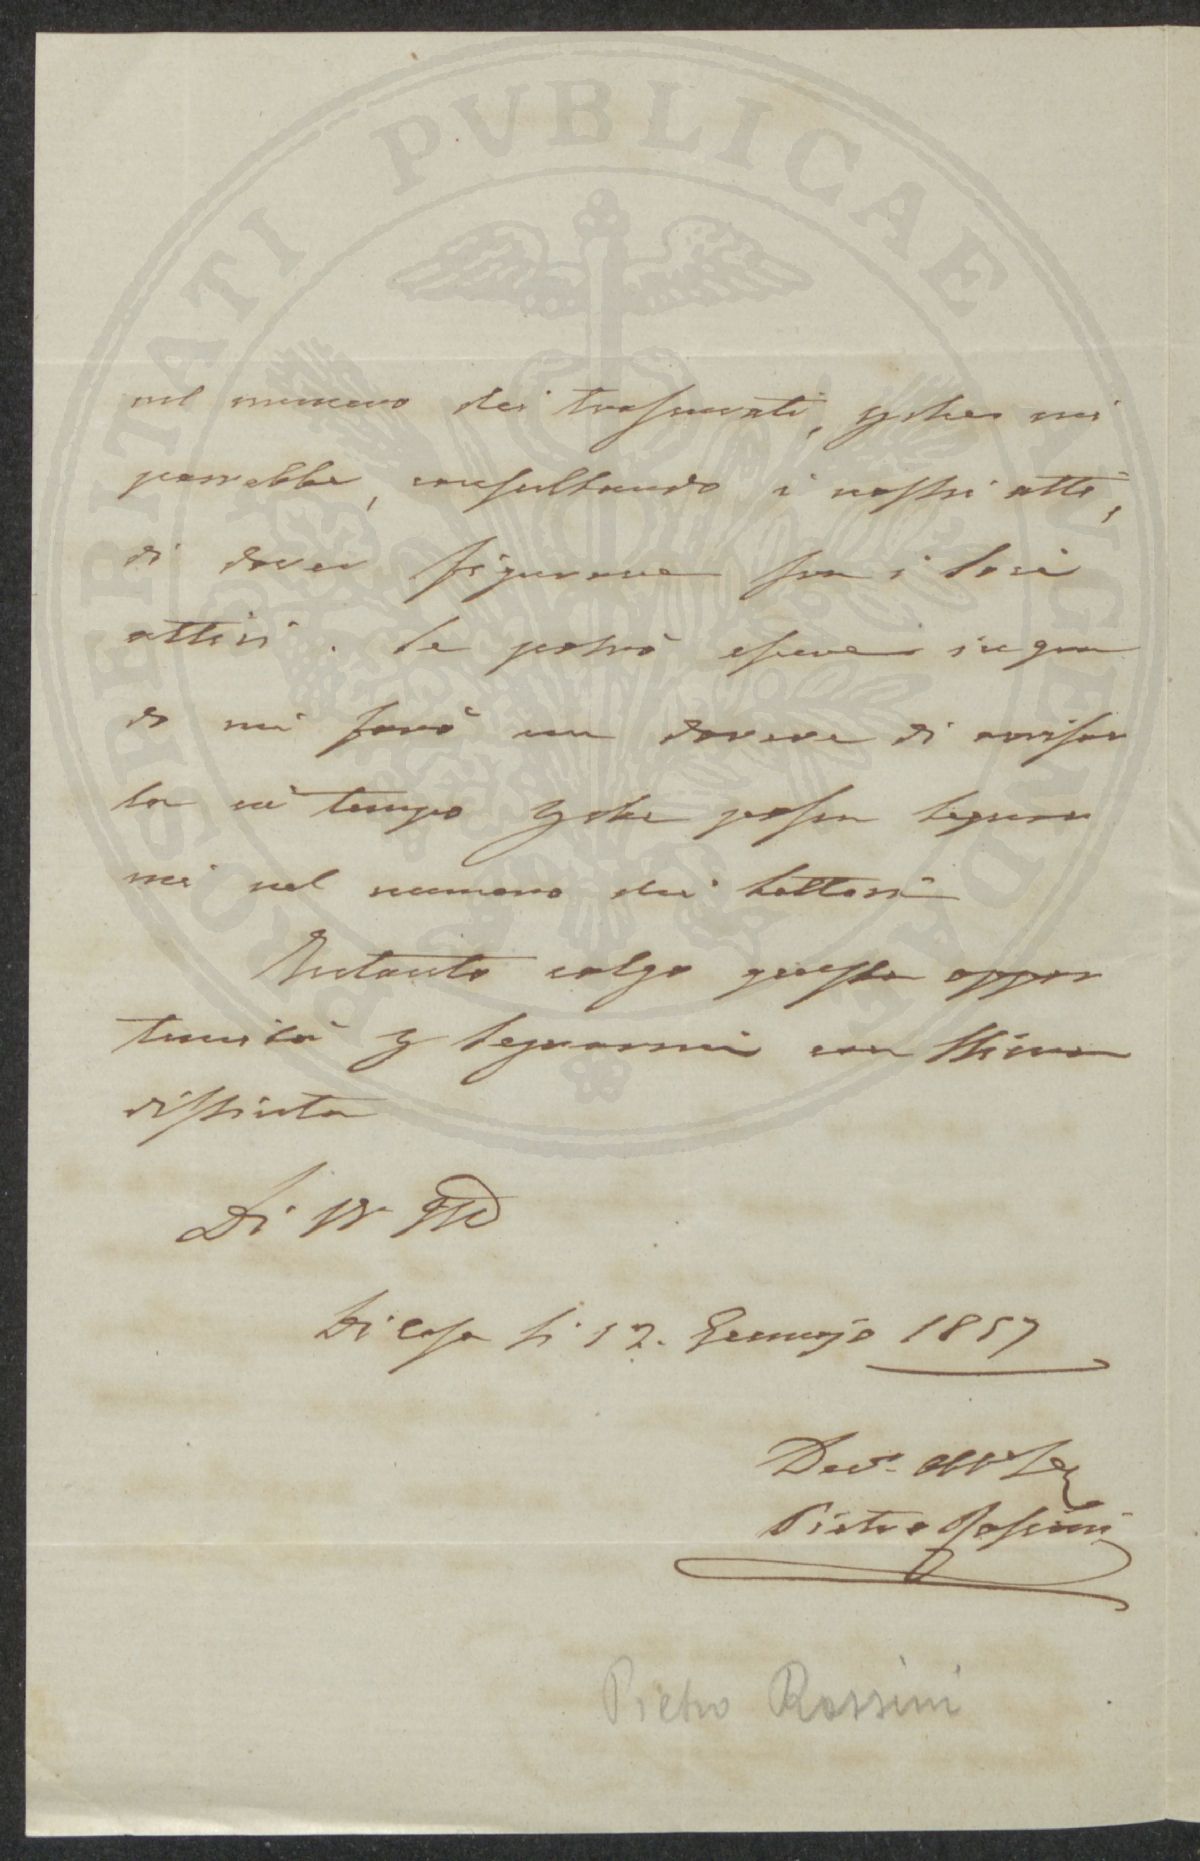 PROSPERITATI PVBLICAE AVGENDAE
nel numero dei trasmessi, che mi
parrebbe, consultando i nostri atti,
di dover figurare fra i Soci
attivi. Se potrò essere in gra
do mi farò un dovere di avvisar
la in tempo che possa segnar
mi nel numero dei Lettori
Intanto colgo questa oppor
tunità segnarmi con stima
distinta
Di
Di Casa li 12. Gennajo 1857
Dev. Obb.
Pietro Rossini
Pietro Rossini